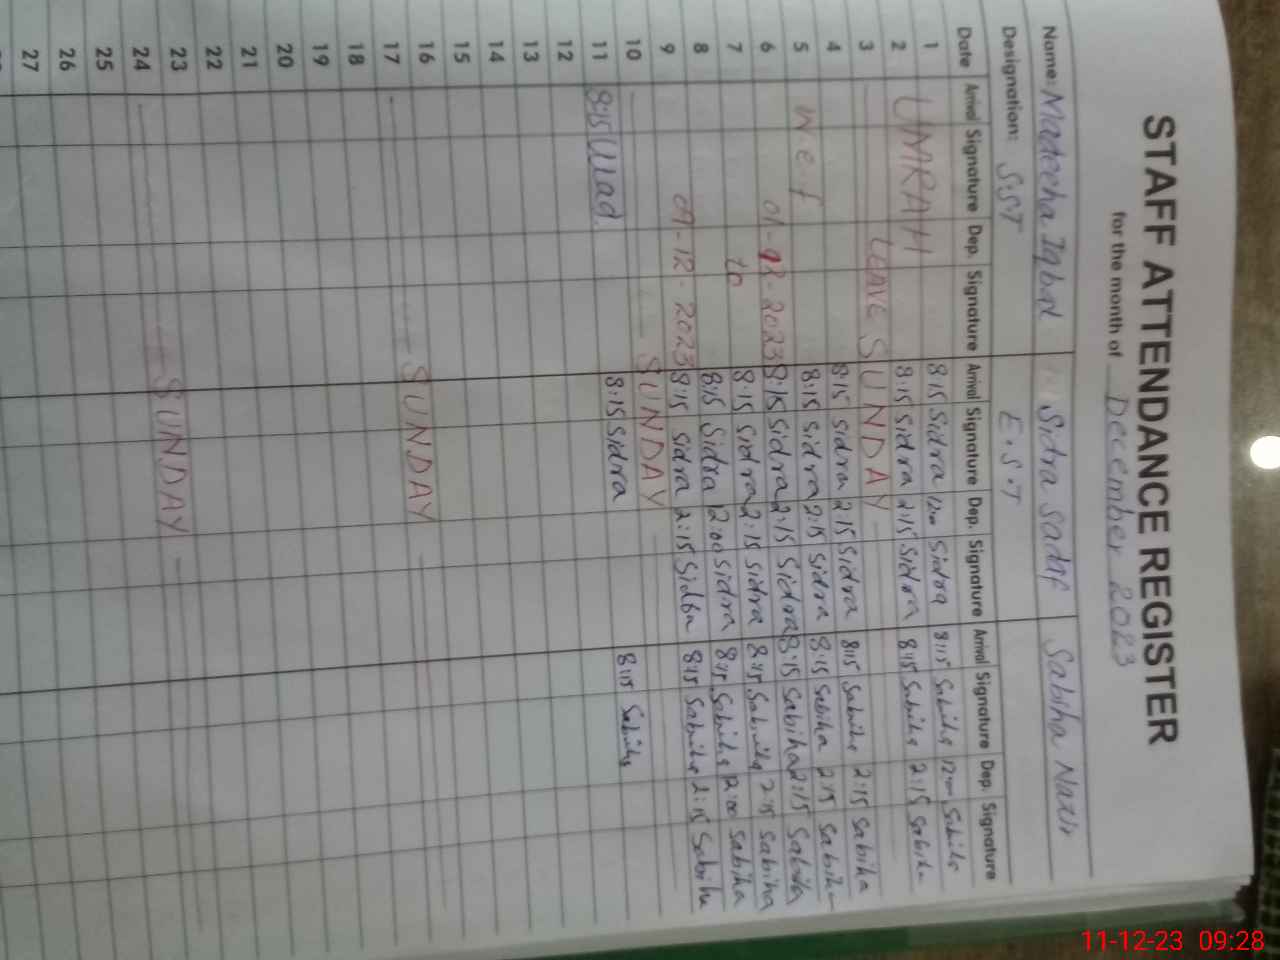 STAFF ATTENDANCE REGISTER
for the month of December 2023
Name: Madeeha Iqbal Sidra Sadaf Sabiha Nazir
Designation: S.S.T E.S.T
Date Arrival Signature Dep. Signature Arrival Signature Dep. Signature Arrival Signature Dep. Signature
1 8:15 Sidra 12:00 Sidra 8:15 Sabiha 12:00 Sabiha
2 UMRAH 8:15 Sidra 2:15 Sidra 8:15 Sabiha 2:15 Sabiha
3 LEAVE SUNDAY
4 8:15 Sidra 2:15 Sidra 8:15 Sabiha 2:15 Sabiha
5 w.e.f 8:15 Sidra 2:15 Sidra 8:15 Sabiha 2:15 Sabiha
6 01-12-2023 8:15 Sidra 2:15 Sidra 8:15 Sabiha 2:15 Sabiha
7 to 8:15 Sidra 2:15 Sidra 8:15 Sabiha 2:15 Sabiha
8 8:15 Sidra 12:00 Sidra 8:15 Sabiha 12:00 Sabiha
9 09-12-2023 8:15 Sidra 2:15 Sidra 8:15 Sabiha 2:15 Sabiha
10 SUNDAY
11 8:15 8:15 Sidra 8:15 Sabiha
12
13
14
15
16
17 SUNDAY
18
19
20
21
22
23
24 SUNDAY
25
26
27
11-12-23 09:28